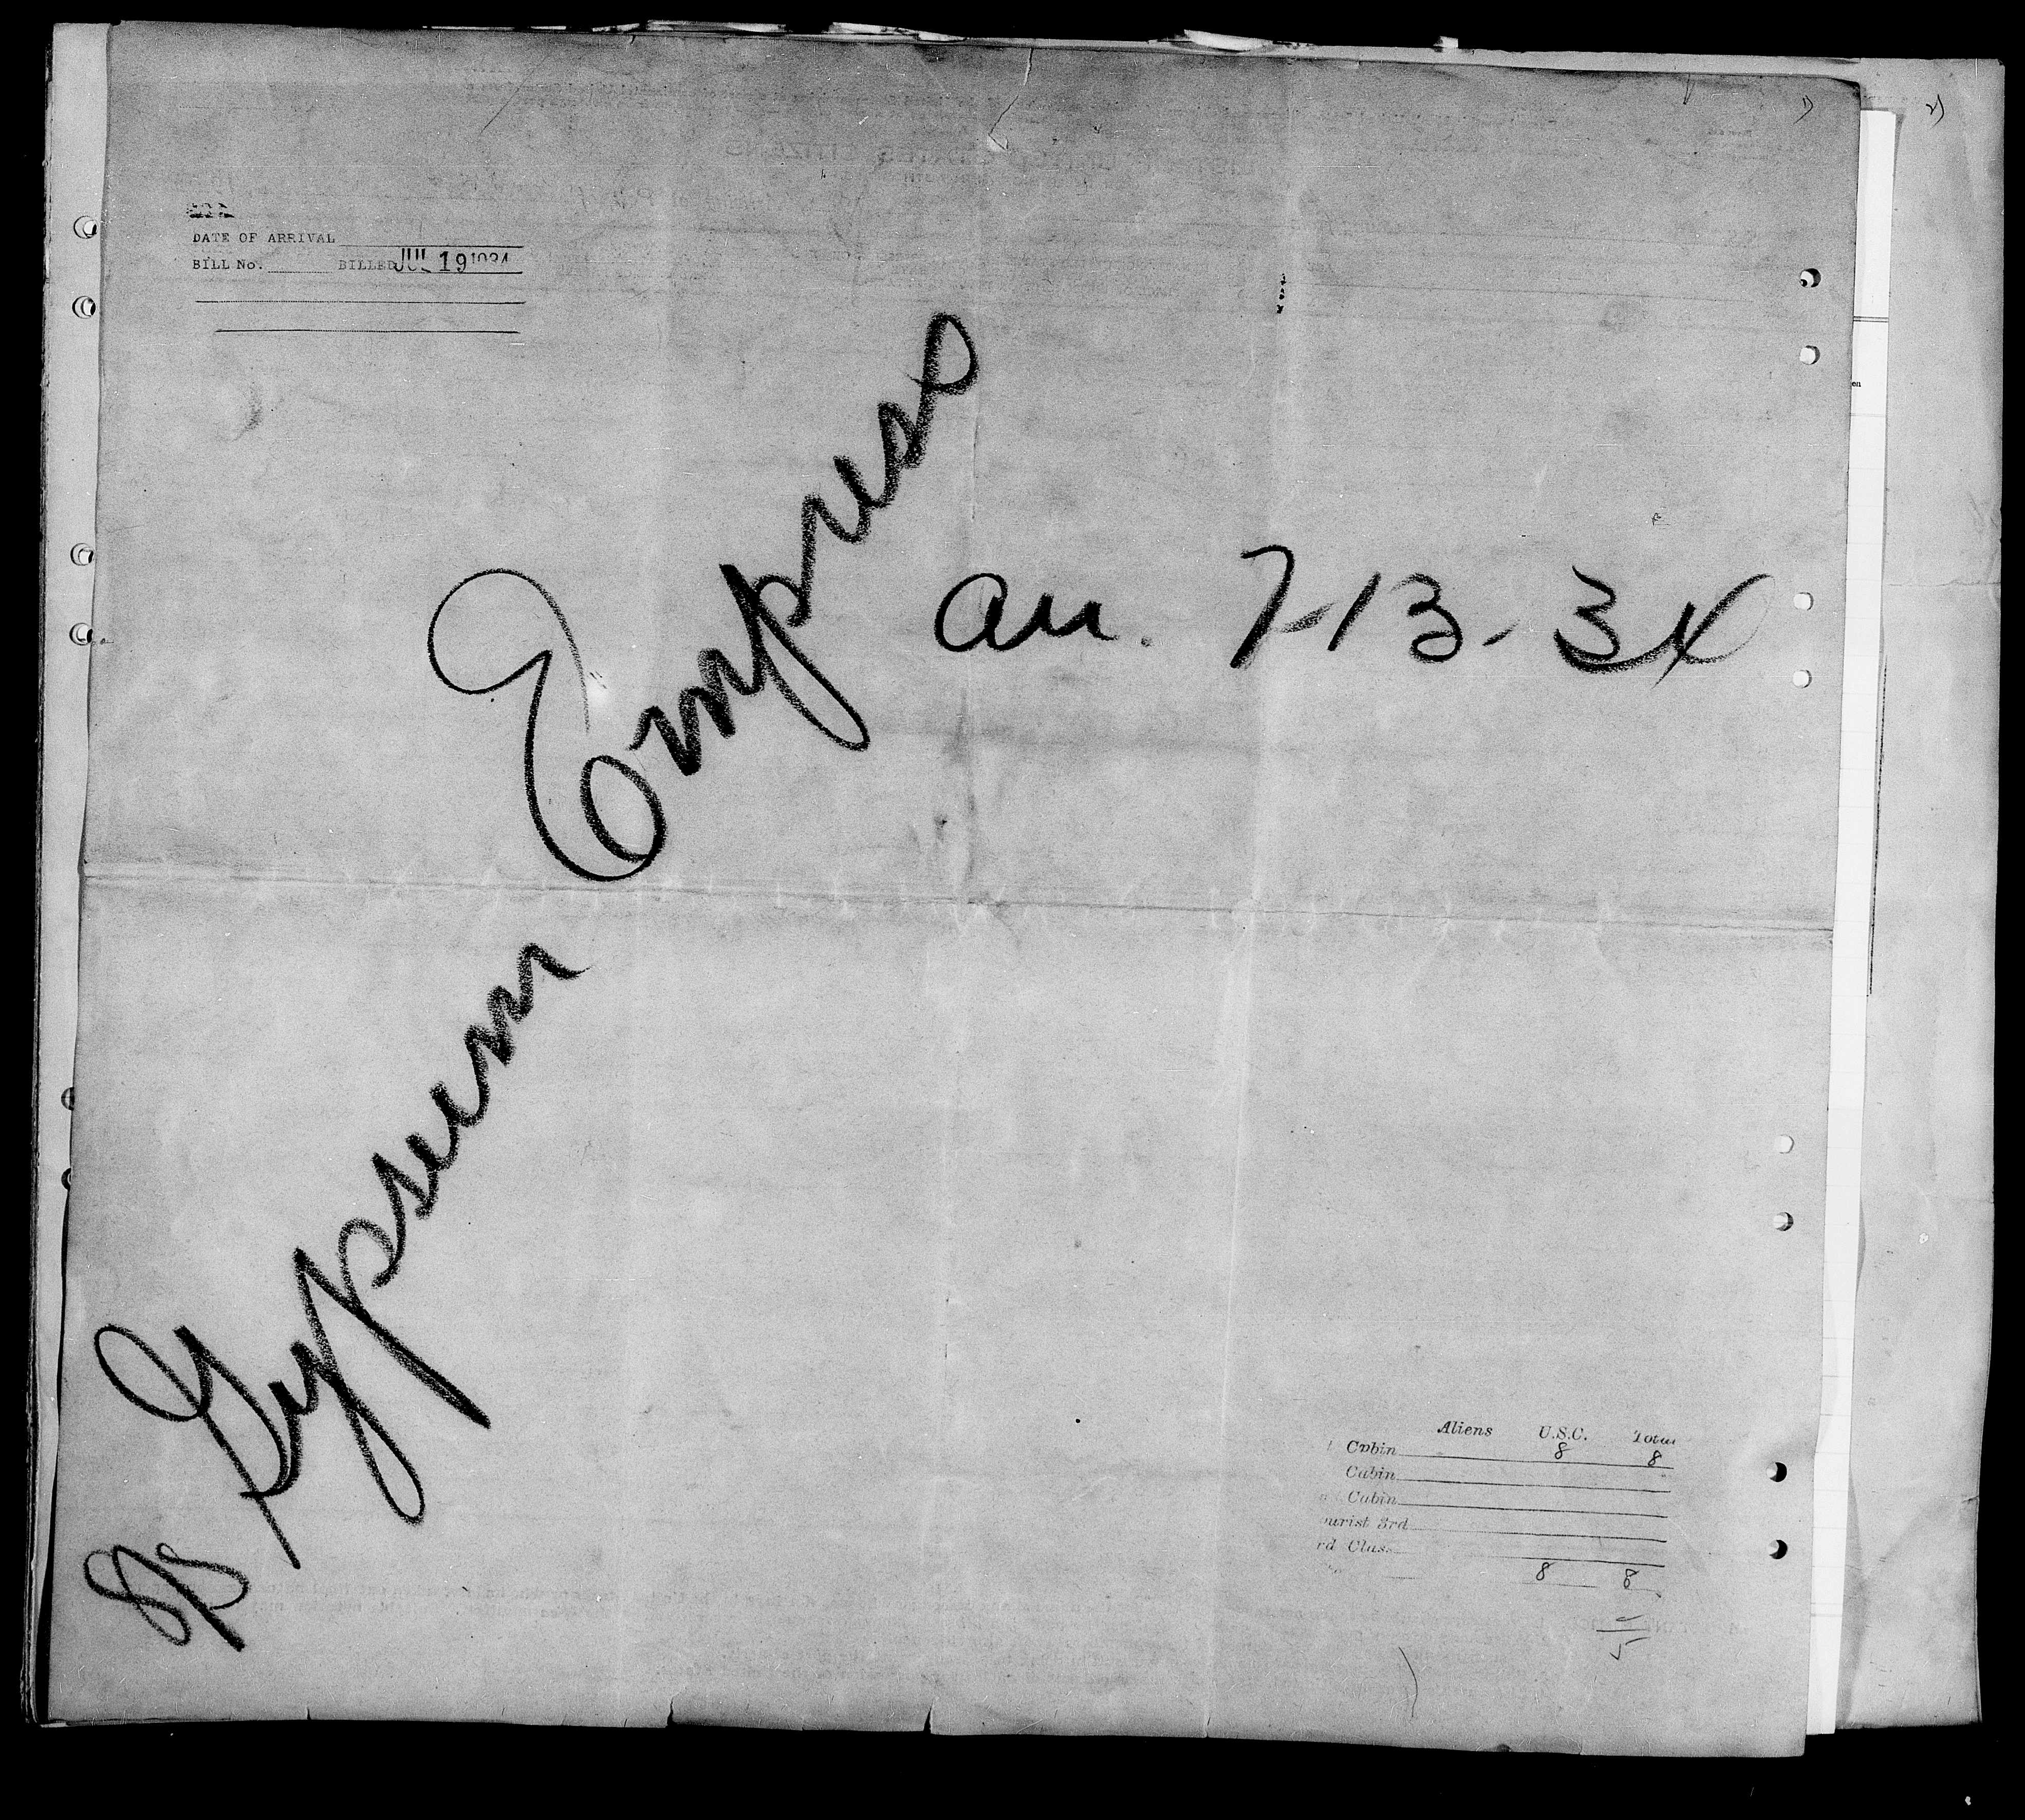 DATE OF ARRIVAL
BILL No. BILLED JUL 19 1934
SS Gypsum Empress
arr. 7-13-34
Aliens U.S.C. Total
Cabin 8 8
Cabin
Cabin
ourist 3rd
rd Class
8 8
1)
2)